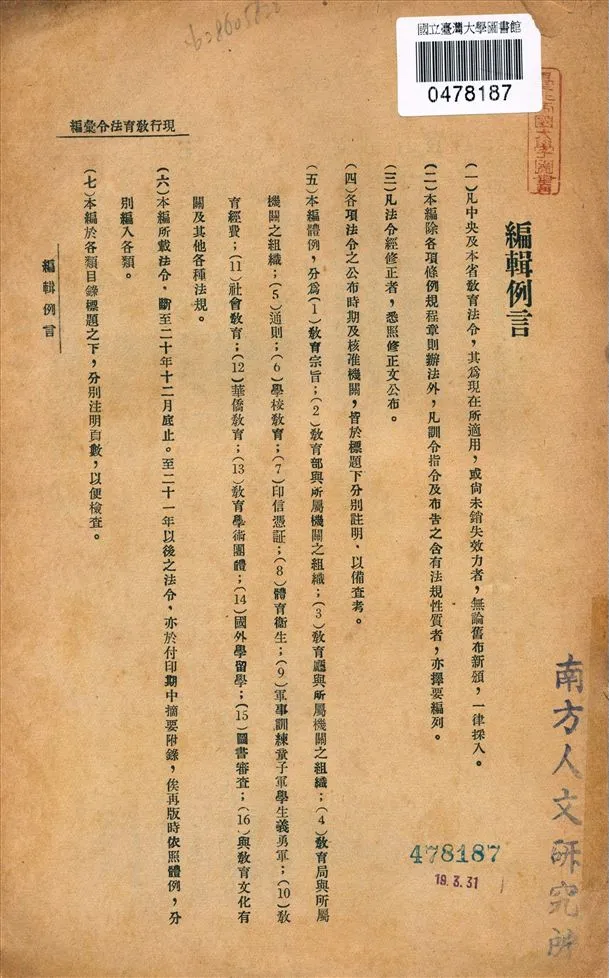 國立臺灣大學圖書館
0478187
編輯例言
(一)凡中央及本省教育法令,其爲現在所適用,或尙未銷失效力者,無論舊布新頒,一律採入。
(二)本編除各項條例規程章則辦法外,凡訓令指令及布告之含有法規性質者,亦擇要編列。
(三)凡法令經修正者,悉照修正文公布。
(四)各項法令之公布時期及核准機關,皆於標題下分別註明,以備查考。
(五)本編體例,分爲(1)教育宗旨;(2)教育部與所屬機關之組織;(3)教育廳與所屬機關之組織;(4)教育局與所屬
機關之組織;(5)通則;(6)學校教育;(7)印信憑証;(8)體育衞生;(9)軍事訓練童子軍學生義勇軍;(10)教
育經費;(11)社會教育;(12)華僑教育;(13)教育學術團體;(14)國外學留學;(15)圖書審查;(16)與教育文化有
關及其他各種法規。
(六)本編所載法令,斷至二十年十二月底止。至二十一年以後之法令,亦於付印期中摘要附錄,俟再版時依照體例,分
別編入各類。
(七)本編於各類目錄標題之下,分別注明頁數,以便檢查。
現行教育法令彙編
編輯例言
南方人文研究所
478187
19.3.31